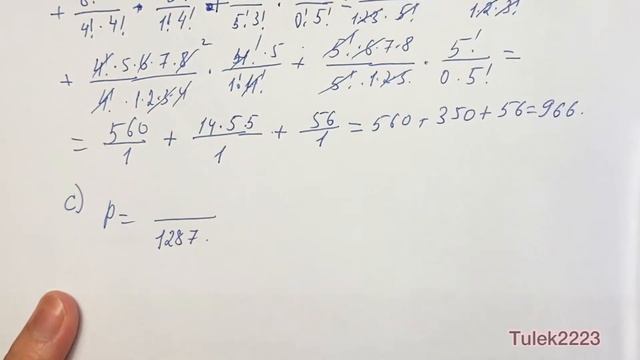 + 8!/(4!·4!) · 5!/(1!·4!) + /(5!·3!) · /(0!·5!) =
+ (4!·5·6·7·8²)/(4!·1·2·3·4) · (4!·5)/(1!·4!) + (5!·6·7·8)/(5!·1·2·3) · 5!/(0·5!) =
= 560/1 + (14·5·5)/1 + 56/1 = 560+350+56=966.
c) p= /1287.
Tulek2223